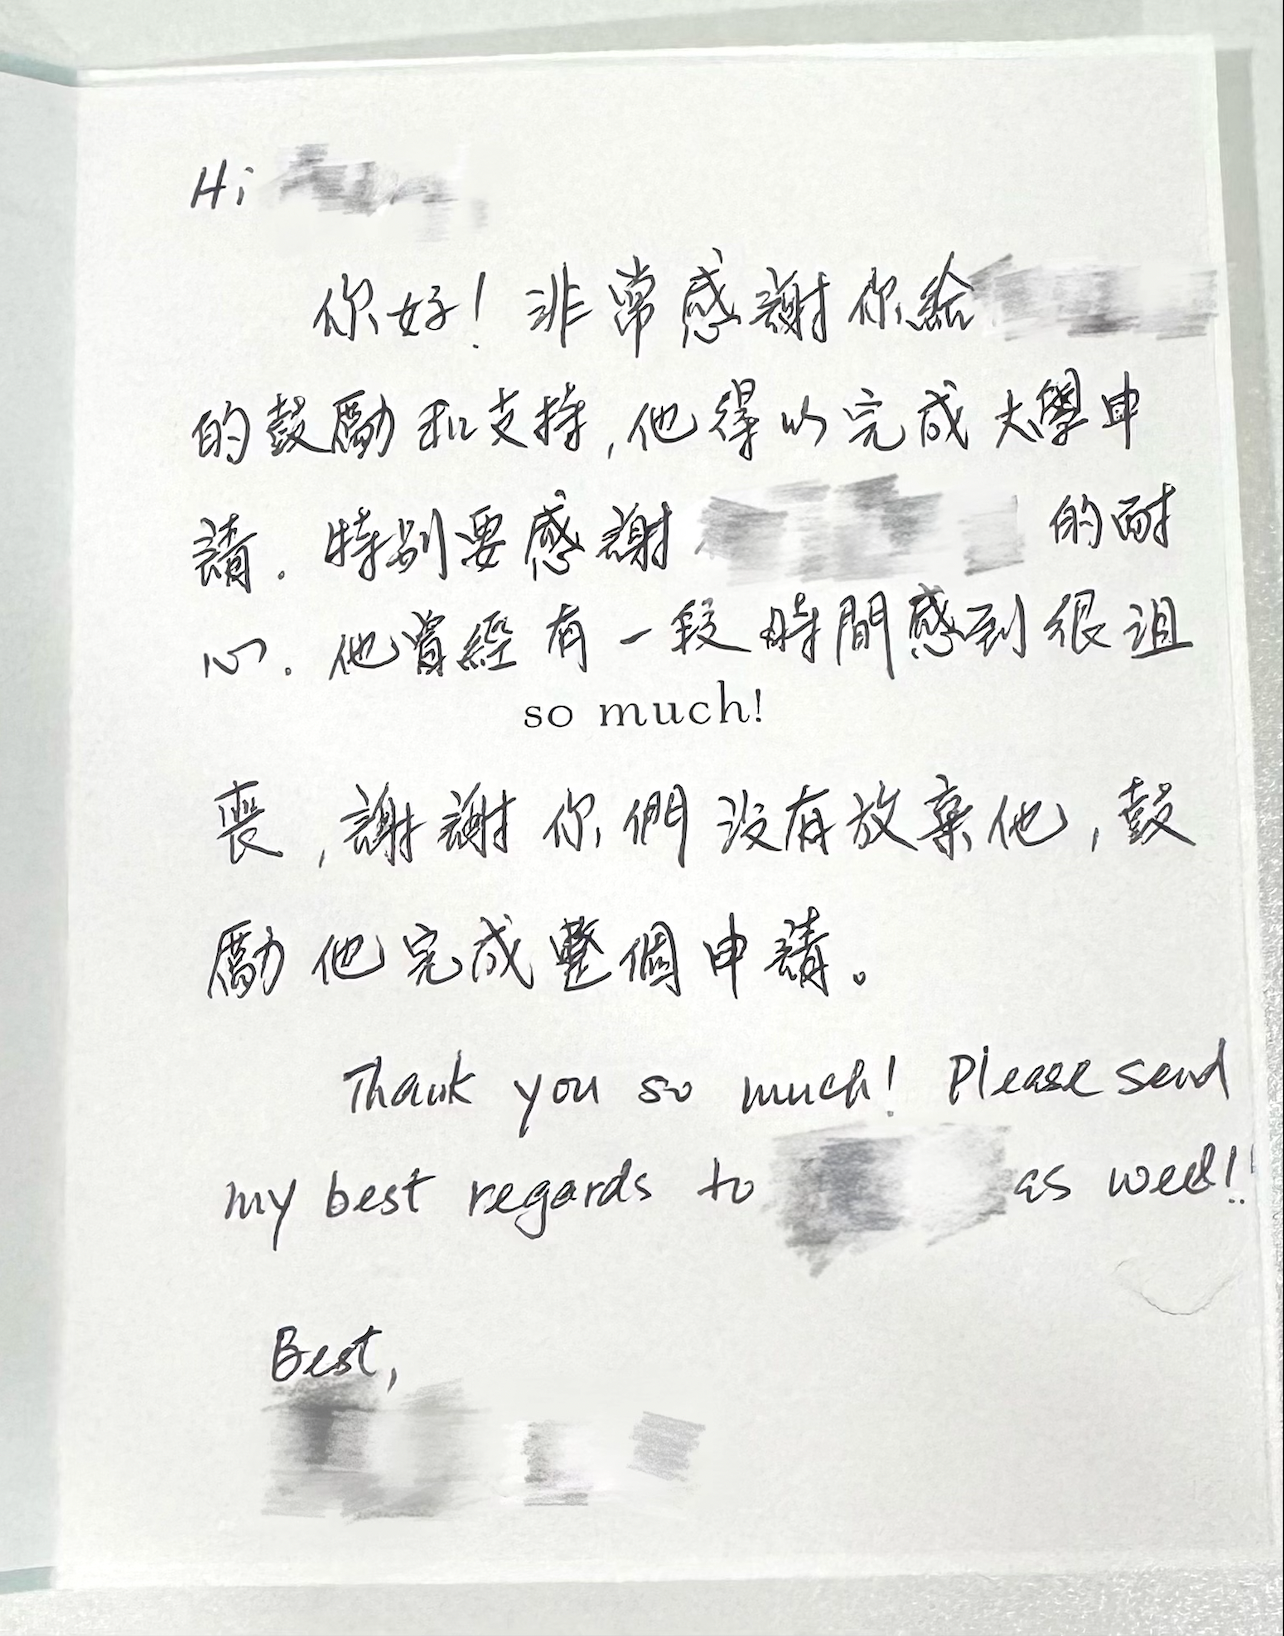 Hi
你好！非常感謝你給
的鼓勵和支持,他得以完成大學申
請.特別要感謝 的耐
心.他嘗經有一段時間感到很沮
so much!
喪,謝謝你們沒有放棄他,鼓
勵他完成整個申請。
Thank you so much! Please send
my best regards to as well!!
Best,